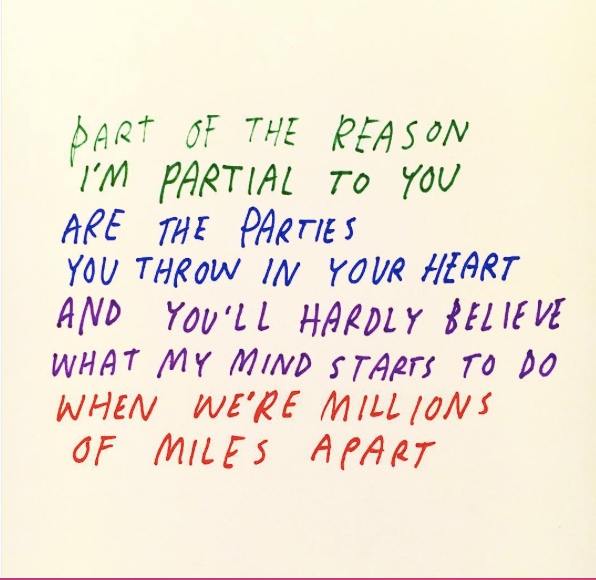 PART OF THE REASON
I'M PARTIAL TO YOU
ARE THE PARTIES
YOU THROW IN YOUR HEART
AND YOU'LL HARDLY BELIEVE
WHAT MY MIND STARTS TO DO
WHEN WE'RE MILLIONS
OF MILES APART